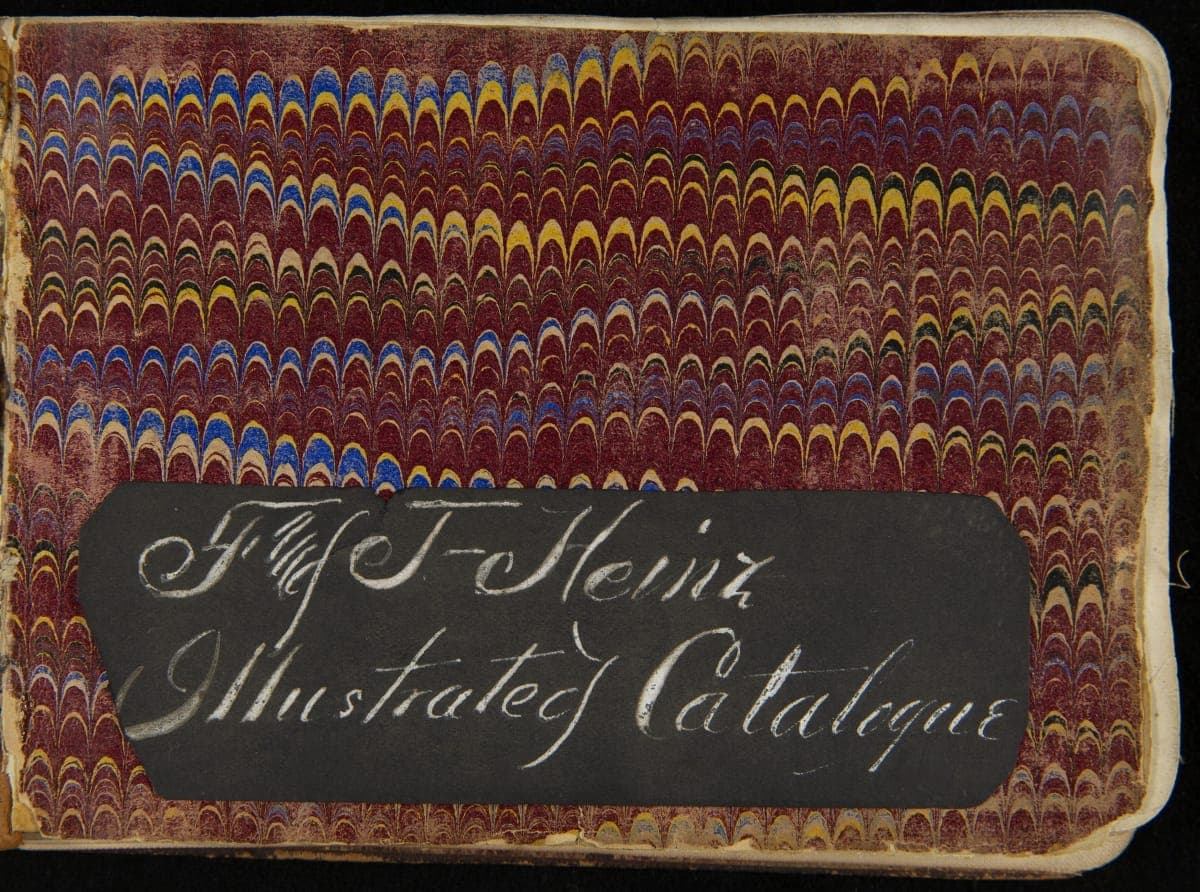 F & J-Heinz
Illustrated Catalogue